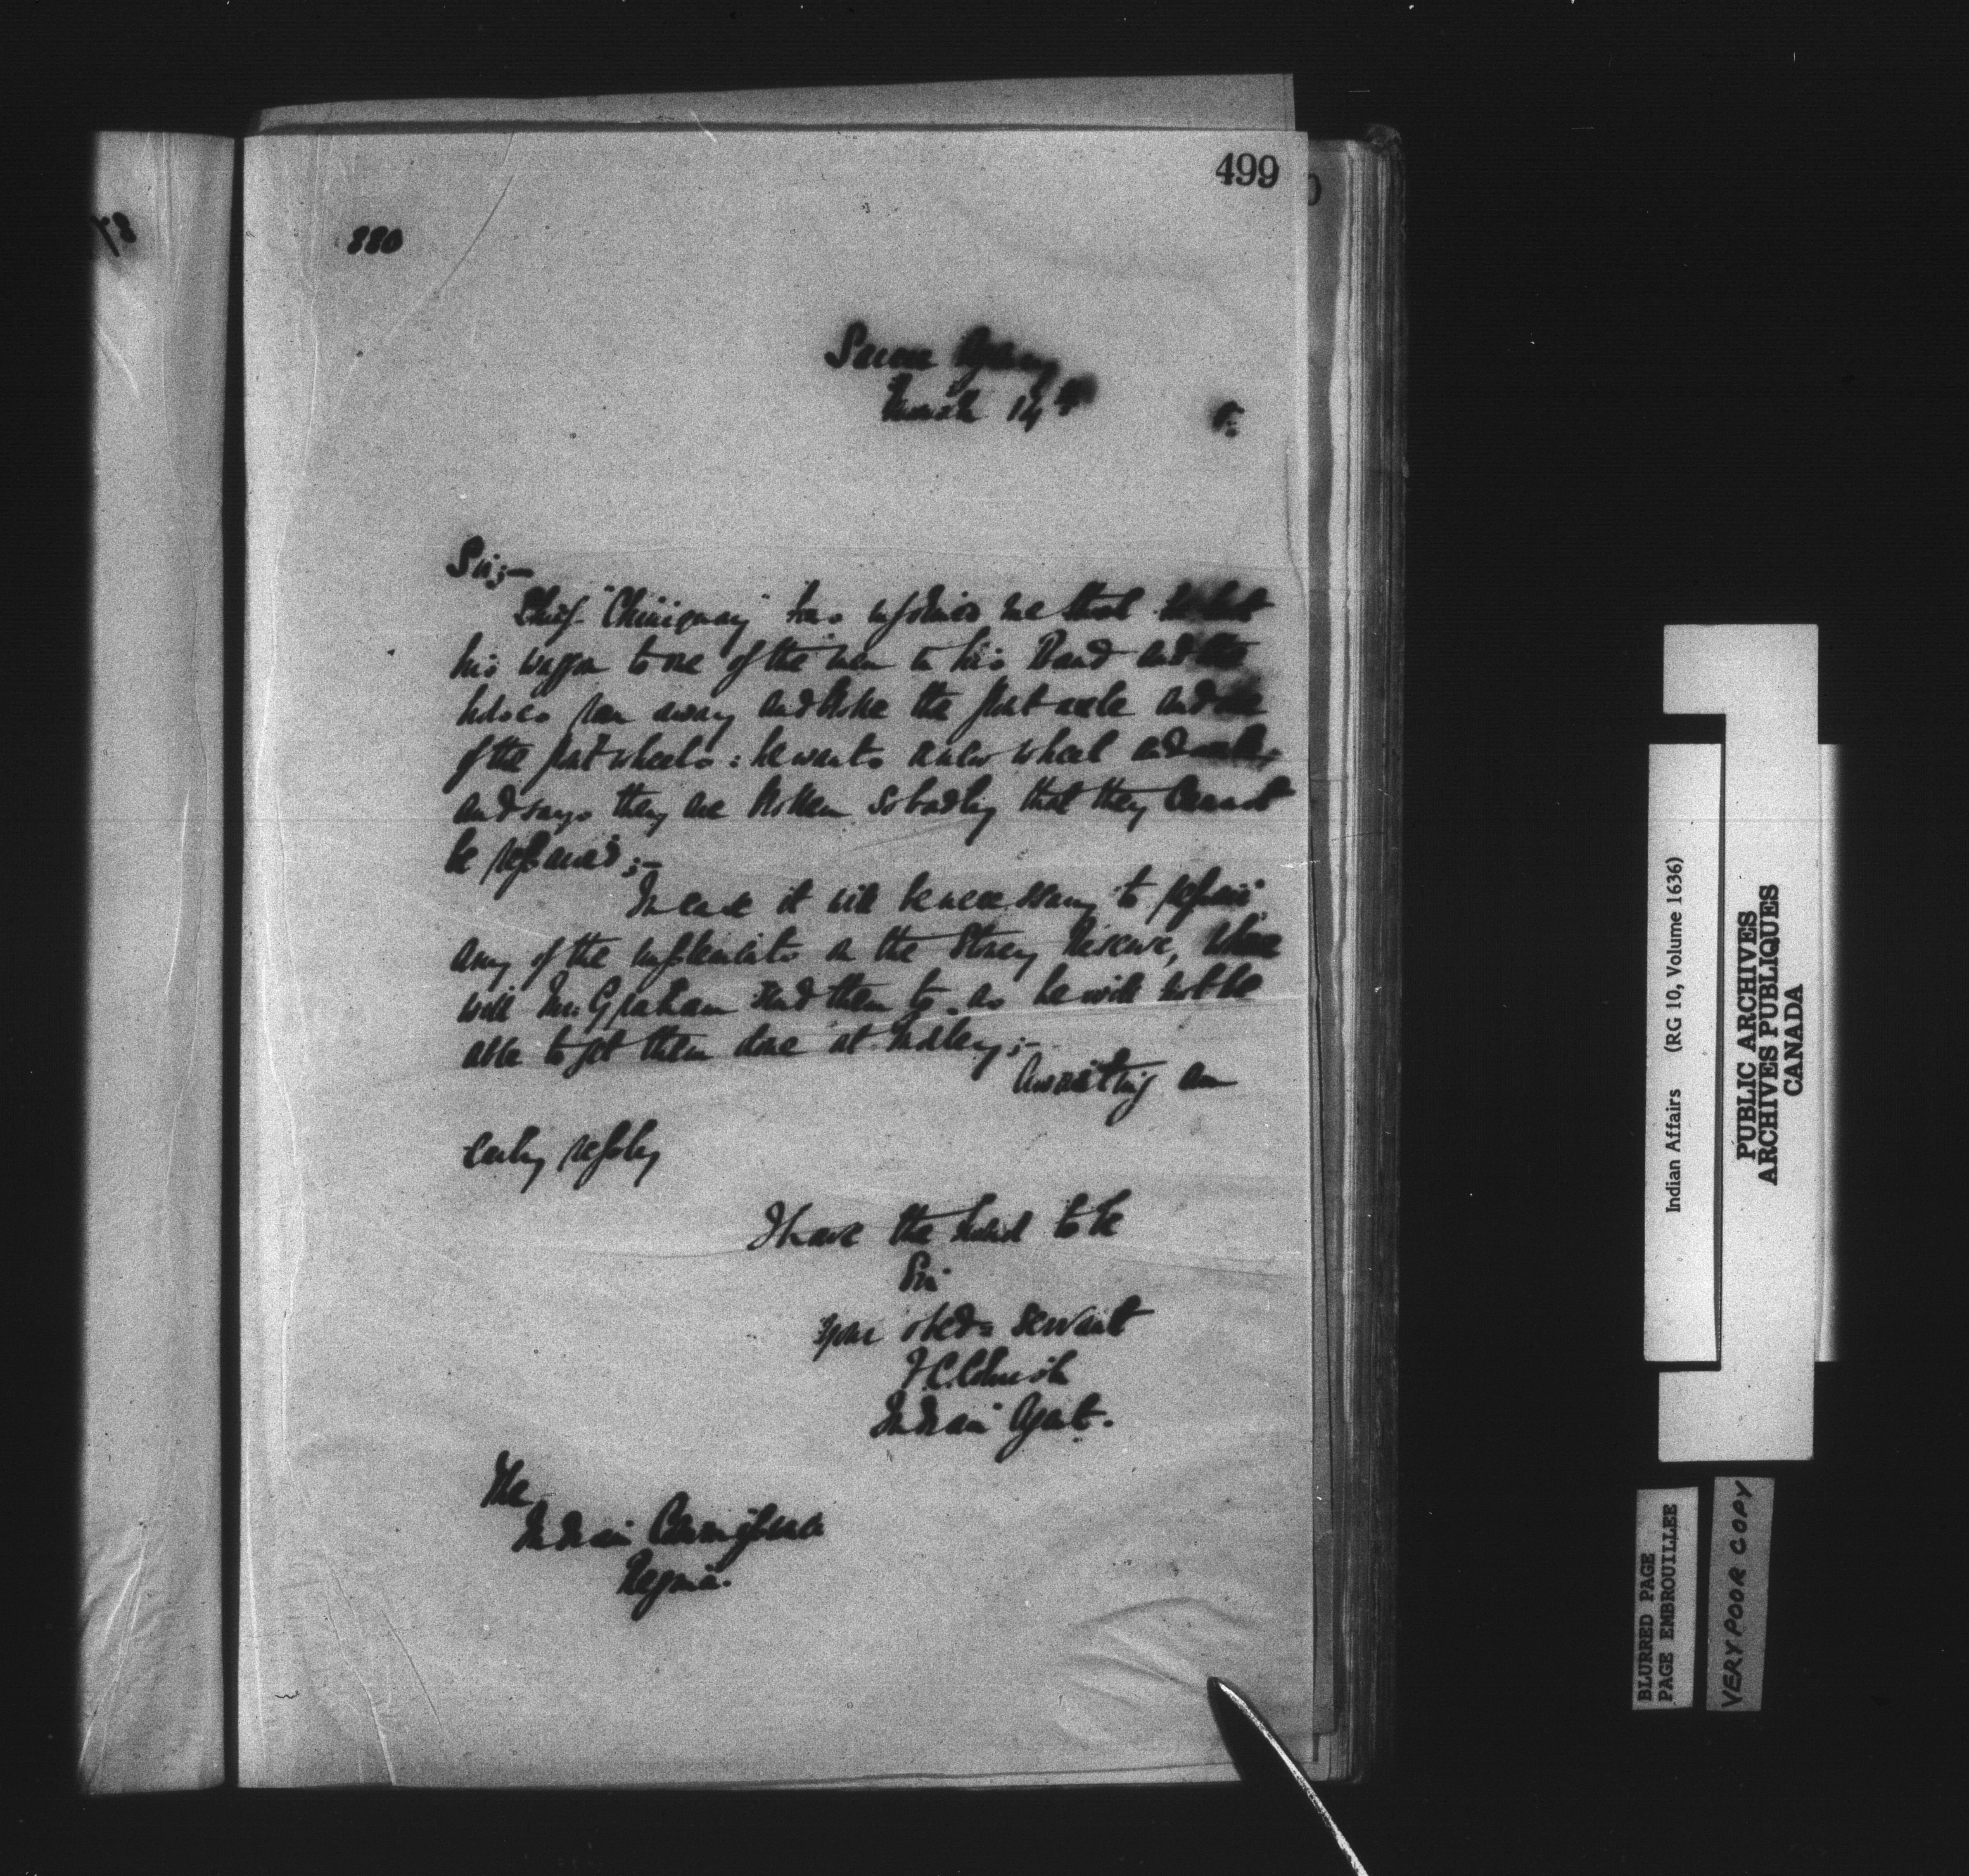 499
880
Sarcee Agency
March 14th
Sir;-
Chief "Chiniquay" has informed me that he lent
his waggon to one of the men in his Band and the
horses ran away and broke the front axle and one
of the front wheels: he wants a new wheel and axle,
and says they are broken so badly that they cannot
be repaired;-
In case it will be necessary to repair
any of the implements on the Stoney Reserve, where
will Mr. Graham send them to as he will not be
able to get them done at Morley;-
Awaiting an
early reply
I have the honor to be
Sir
your obedt servant
Indian Agent.
The
Indian Commissioner
Regina.
Indian Affairs (RG 10, Volume 1636)
PUBLIC ARCHIVES
ARCHIVES PUBLIQUES
CANADA
BLURRED PAGE
PAGE EMBROUILLEE
VERY POOR COPY